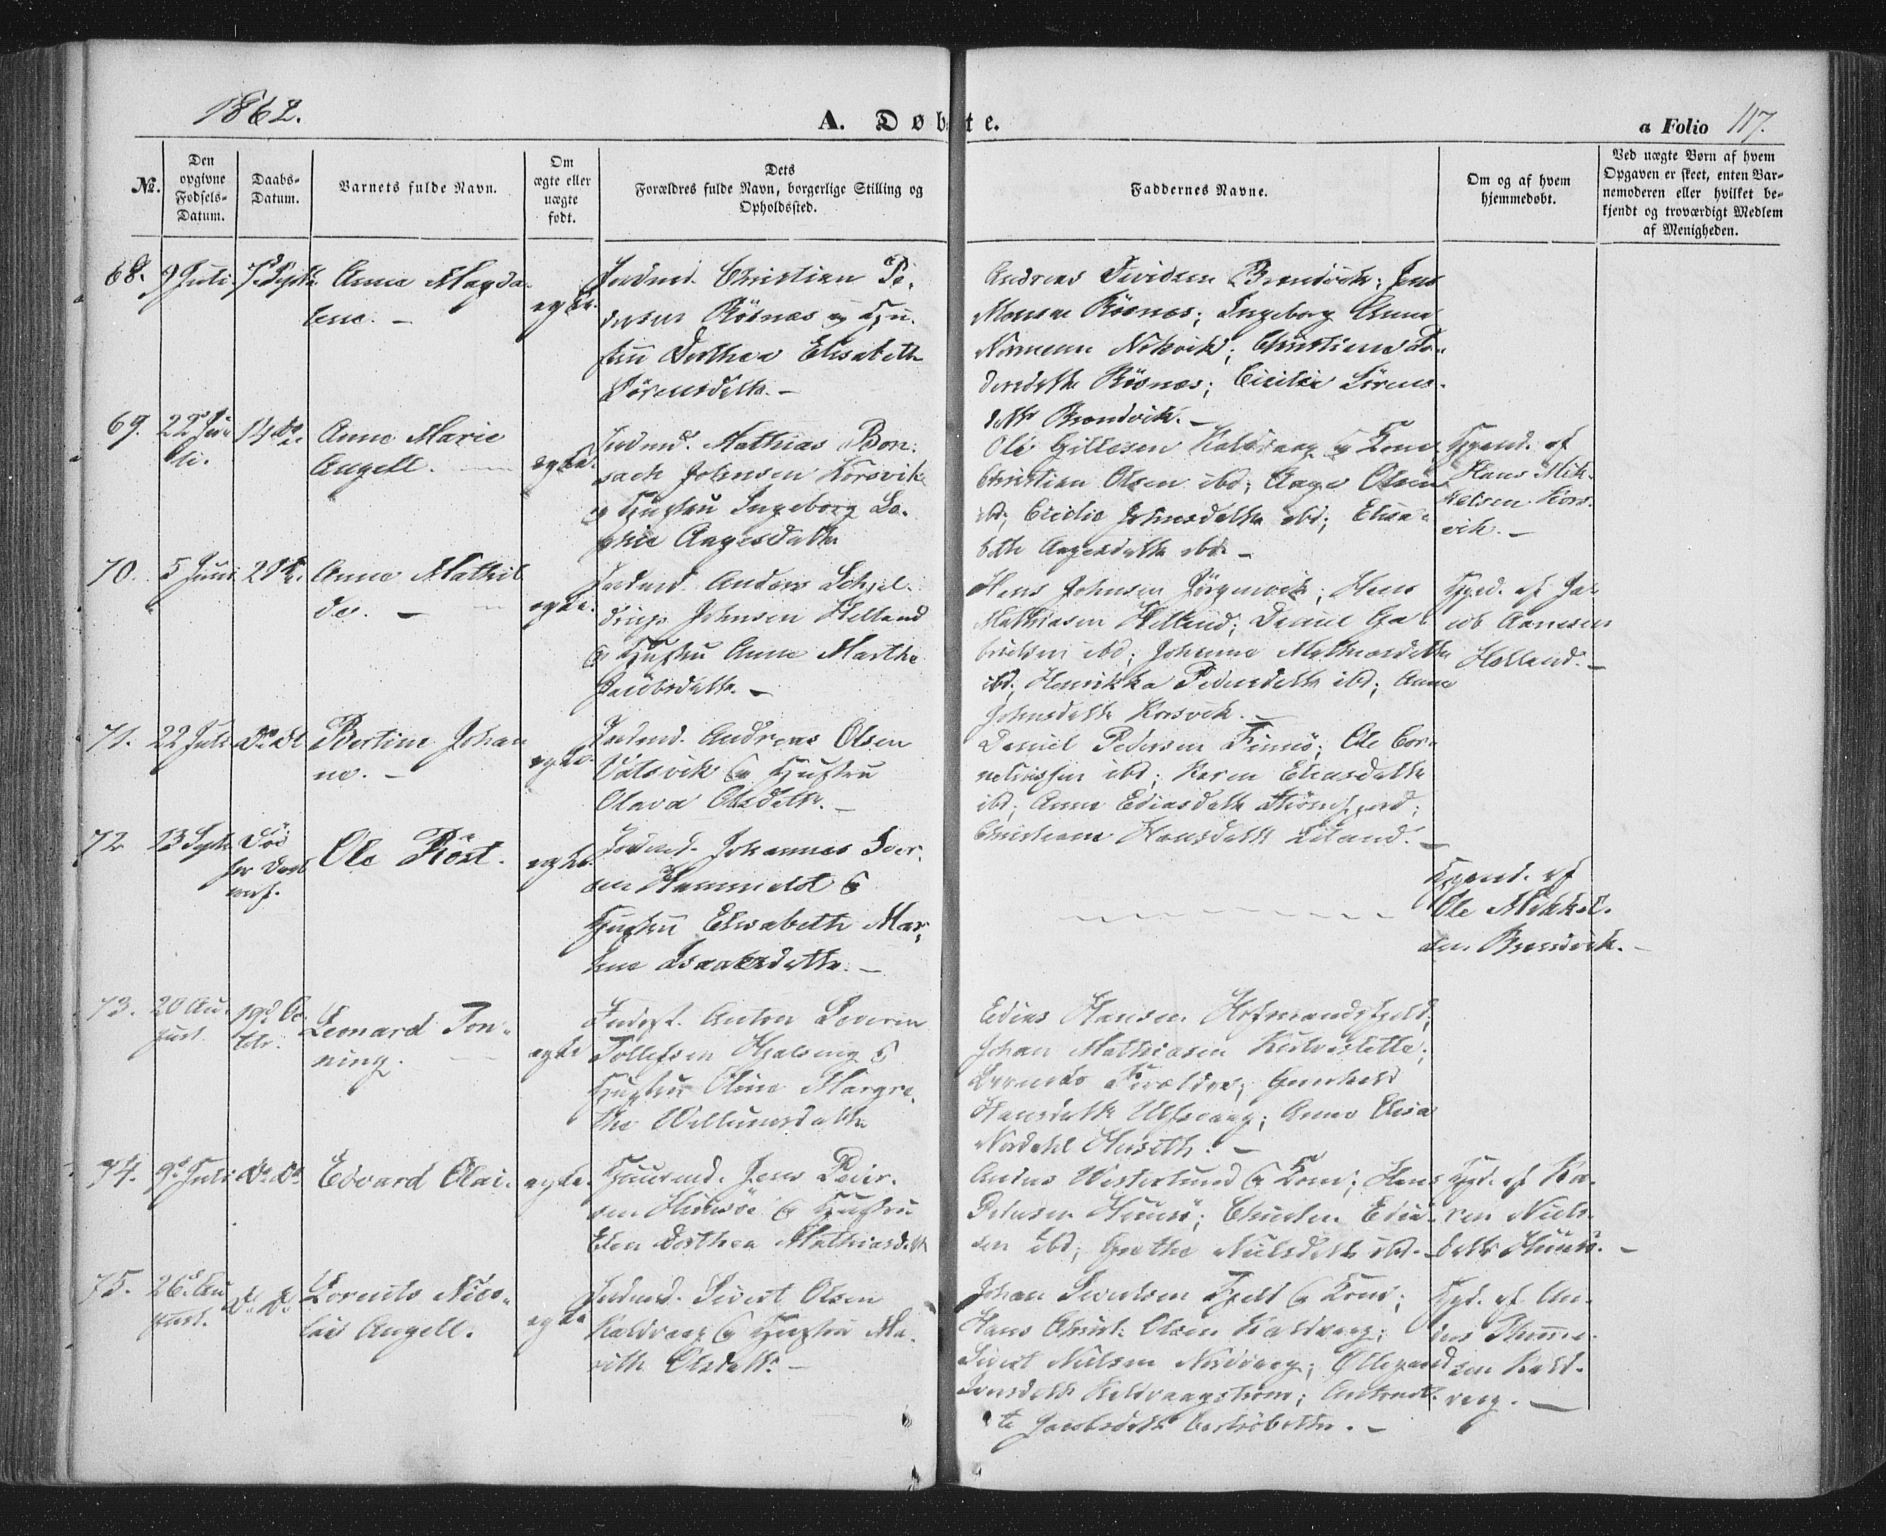 1862.
A. Døbte.
a Folio 117.
No.
Den opgivne Fødsels-Datum.
Daabs-Datum.
Barnets fulde Navn.
Om ægte eller uægte født.
Dets Forældres fulde Navn, borgerlige Stilling og Opholdssted.
Faddernes Navne.
Om og af hvem hjemmedøbt.
Ved uægte Børn af hvem Opgaven er skeet, enten Barnemoderen eller hvilket bekjendt og troværdigt Medlem af Menigheden.
68. 9 Juli 7. Septb. Anna Magda-
lene. —
ægte.
Indmd. Christian Pe-
dersen Rösnæs og Hu-
stru Dorthea Elisabeth
Sörensdatter. —
Andreas Brendvik; Jens
Monsen Rösnæs; Ingeborg Anna
Christiana Pe-
dersdatter Rösnæs; Cicilie Sörens-
datr Brendvik. —
69. 22 Ju-
li.
14 do.
Anne Marie
Angell. —
ægte.
Indmd. Mathias Bon-
sach Johnsen Korsvik
og Hustru Ingeborg So-
phie Aagesdatter
Ole Gillesen Kaldvaag og Kone
Christian Olsen ibd; Aage Olsen
ibd; Cicilie Johnsdatter ibd; Elisa-
beth Aagesdatter ibd —
Hjemd. af
Hans Mik-
kelsen Kors-
vik. —
70. 5 Juni
Anna Mathil
de. —
ægte.
Indmd. Anders Schjel-
drup Johnsen Helland
og Hustru Anne Marthe
Jacobsdatter. —
Hans Johnsen Jörgenvik; Hans
Mathiasen Helland; Daniel Ga-
brielsen ibd; Johanna Mathiasdatter
ibd; Henrikka Pedersdatter ibd; Anne
Johnsdatter Korsvik. —
Hjmd. af Ja-
cob Aanesen
Helland. —
71. 22 Juli do do Bertine Johan
ne. —
ægte.
Indmd. Andreas Olsen
Valsvik og Hustru
Olava Olsdatter. —
Daniel Pedersen Finnö; Ole Cor-
neliussen ibd; Karen Eliasdatter
ibd; Anne Ediasdatter
Hansdatter
72 13 Septb. Död
för Daab
Ole Röst.
ægte.
Indmd. Johannes Iver-
sen og
Hustru Elisabeth Mar-
thea Isaaksdatter. —
Hjemd. af
Ole Mikkel-
sen Brendvik. —
73. 20 Au-
gust.
19de Oc-
tobr.
Leonard Ton-
ning. —
ægte
Anton Severin
Tollefsen og
Hustru Oline Margre-
the Villumsdatter
Edias Hansen Hofmandsfjeld;
Johan Mathiasen
Gunhild
Hansdatter Ulfsvaag; Anne Elisa
Nordahl Husöth. —
74. 9d Juli do do Edvard Olai.
ægte.
Huusmd. Jens Peder-
sen Huusöe og Hustru
Elen Dorthea Mathiasdatter
Anders Westerlund og Kone; Hans
Pedersen Huusö; Edia-
sen ibd; Grethe Nielsdatter ibd. —
Hjmd. af Ka-
ren Niels-
datter Huusö. —
75. 26. Au
gust.
do do
Lorents Nico-
lai Angell.
ægte
Indmd. Sivert Olsen
Kaldvaag og Hustru Ma-
rith Olsdatter —
Johan Sivertsen Fjeld og Kone;
Hans Christ. Olsen Kaldvaag;
Sivert Nielsen Nordvaag; Ollegaard
Iversdatter Kaldvaagström; Antonet-
te Jacobsdatter
Hjmd. af An-
ders
sen Kald-
vaag. —